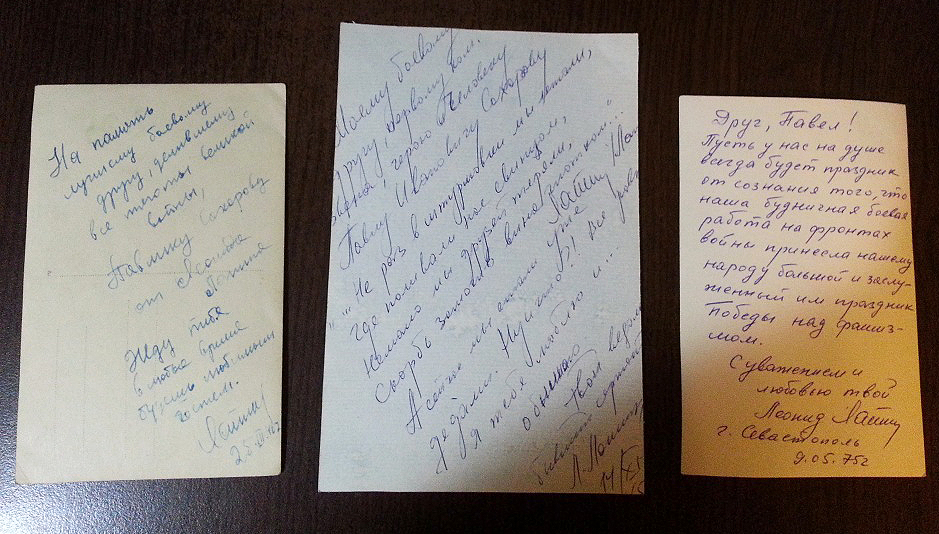 На память
лучшему боевому
другу, делившему
все тяготы великой
войны,
Павлику Сахарову
от Леонида
Жду тебя
в любое время
будешь любимым
гостем.
Моему боевому
другу, первому
герою Человеку
Павлу Ивановичу Сахарову
"... Не раз в штурмовки мы летали,
Где поливали нас свинцом,
Немало мы друзей теряли,
Скорбь заливая вином..."
А сейчас мы стали уже
дедами. Ну и что?! Все
Я тебя люблю и...
обнимаю
Твой
бывший
Друг, Павел!
Пусть у нас на душе
всегда будет праздник
от сознания того, что
наша будничная боевая
работа на фронтах
войны принесла нашему
народу большой и заслу-
женный им праздник
Победы над фашиз-
мом.
С уважением и
любовью твой
Леонид
г. Севастополь
9.05.75г